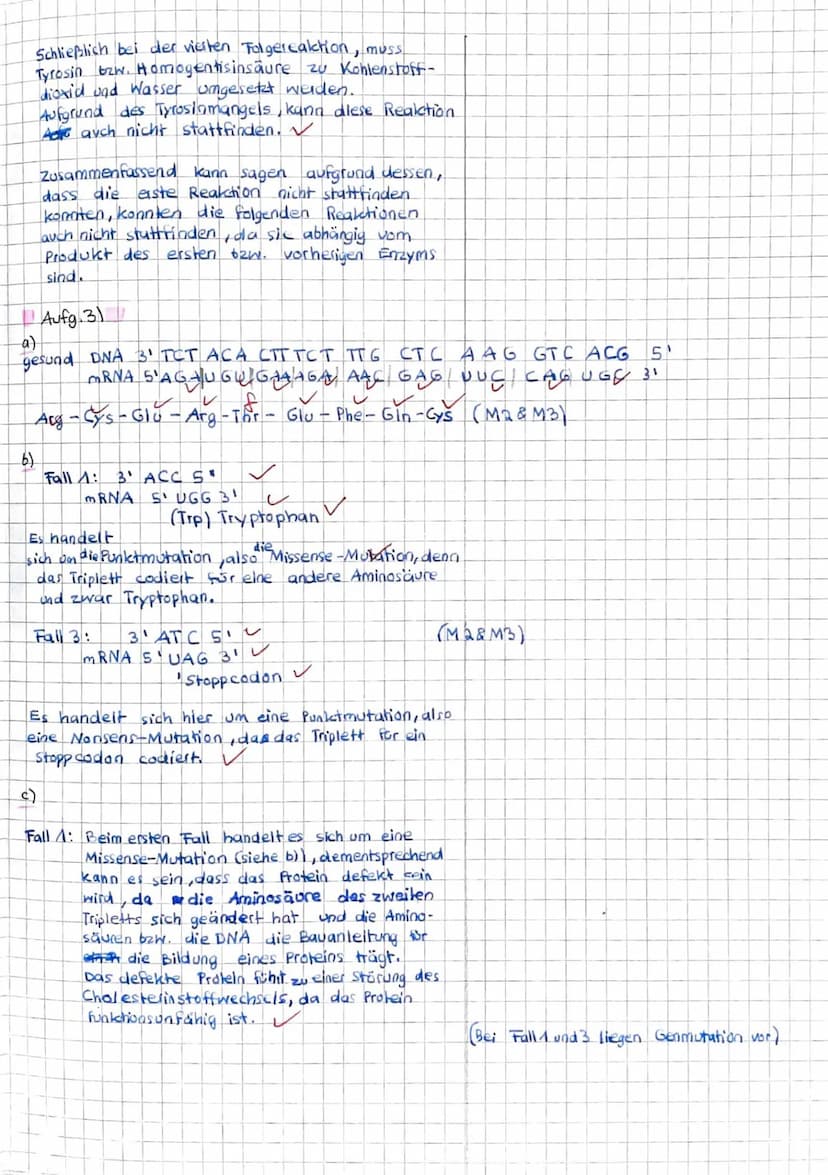 Schließlich bei der vierten Folgereaktion, muss
Tyrosin bzw. Homogentisinsäure zu Kohlenstoff-
dioxid und Wasser umgesetzt werden.
Aufgrund des Tyrosinmangels, kann diese Reaktion
auch nicht stattfinden. ✓
Zusammenfassend kann sagen aufgrund dessen,
dass die erste Reaktion nicht stattfinden
konnten, konnten die folgenden Reaktionen
auch nicht stattfinden, da sie abhängig vom
Produkt des ersten bzw. vorherigen Enzyms
sind.
Aufg. 3)
a)
gesund DNA 3' TCT ACA CTT TCT TTG CTC AAG GTC ACG 5'
mRNA 5' AGA|UGU|GAA|AGA|AAC|GAG|UUC|CAG UGC 3'
f
Arg - Cys - Glu - Arg - Thr - Glu - Phe - Gln - Cys (M2 & M3)
b)
Fall 1: 3' ACC 5' ✓
mRNA 5' UGG 3' ✓
(Trp) Tryptophan ✓
Es handelt
sich um die Punktmutation, also die Missense-Mutation, denn
das Triplett codiert für eine andere Aminosäure
und zwar Tryptophan.
Fall 3: 3' ATC 5' ✓ (M2 & M3)
mRNA 5' UAG 3' ✓
'Stoppcodon ✓
Es handelt sich hier um eine Punktmutation, also
eine Nonsens-Mutation, das das Triplett für ein
Stoppcodon codiert. ✓
c)
Fall 1: Beim ersten Fall handelt es sich um eine
Missense-Mutation (siehe b)), dementsprechend
kann es sein, dass das Protein defekt sein
wird, da die Aminosäure des zweiten
Tripletts sich geändert hat und die Amino-
säuren bzw. die DNA die Bauanleitung für
die Bildung eines Proteins trägt.
Das defekte Protein führt zu einer Störung des
Cholesterinstoffwechsels, da das Protein
funktionsunfähig ist. ✓
(Bei Fall 1 und 3 liegen Genmutation vor)